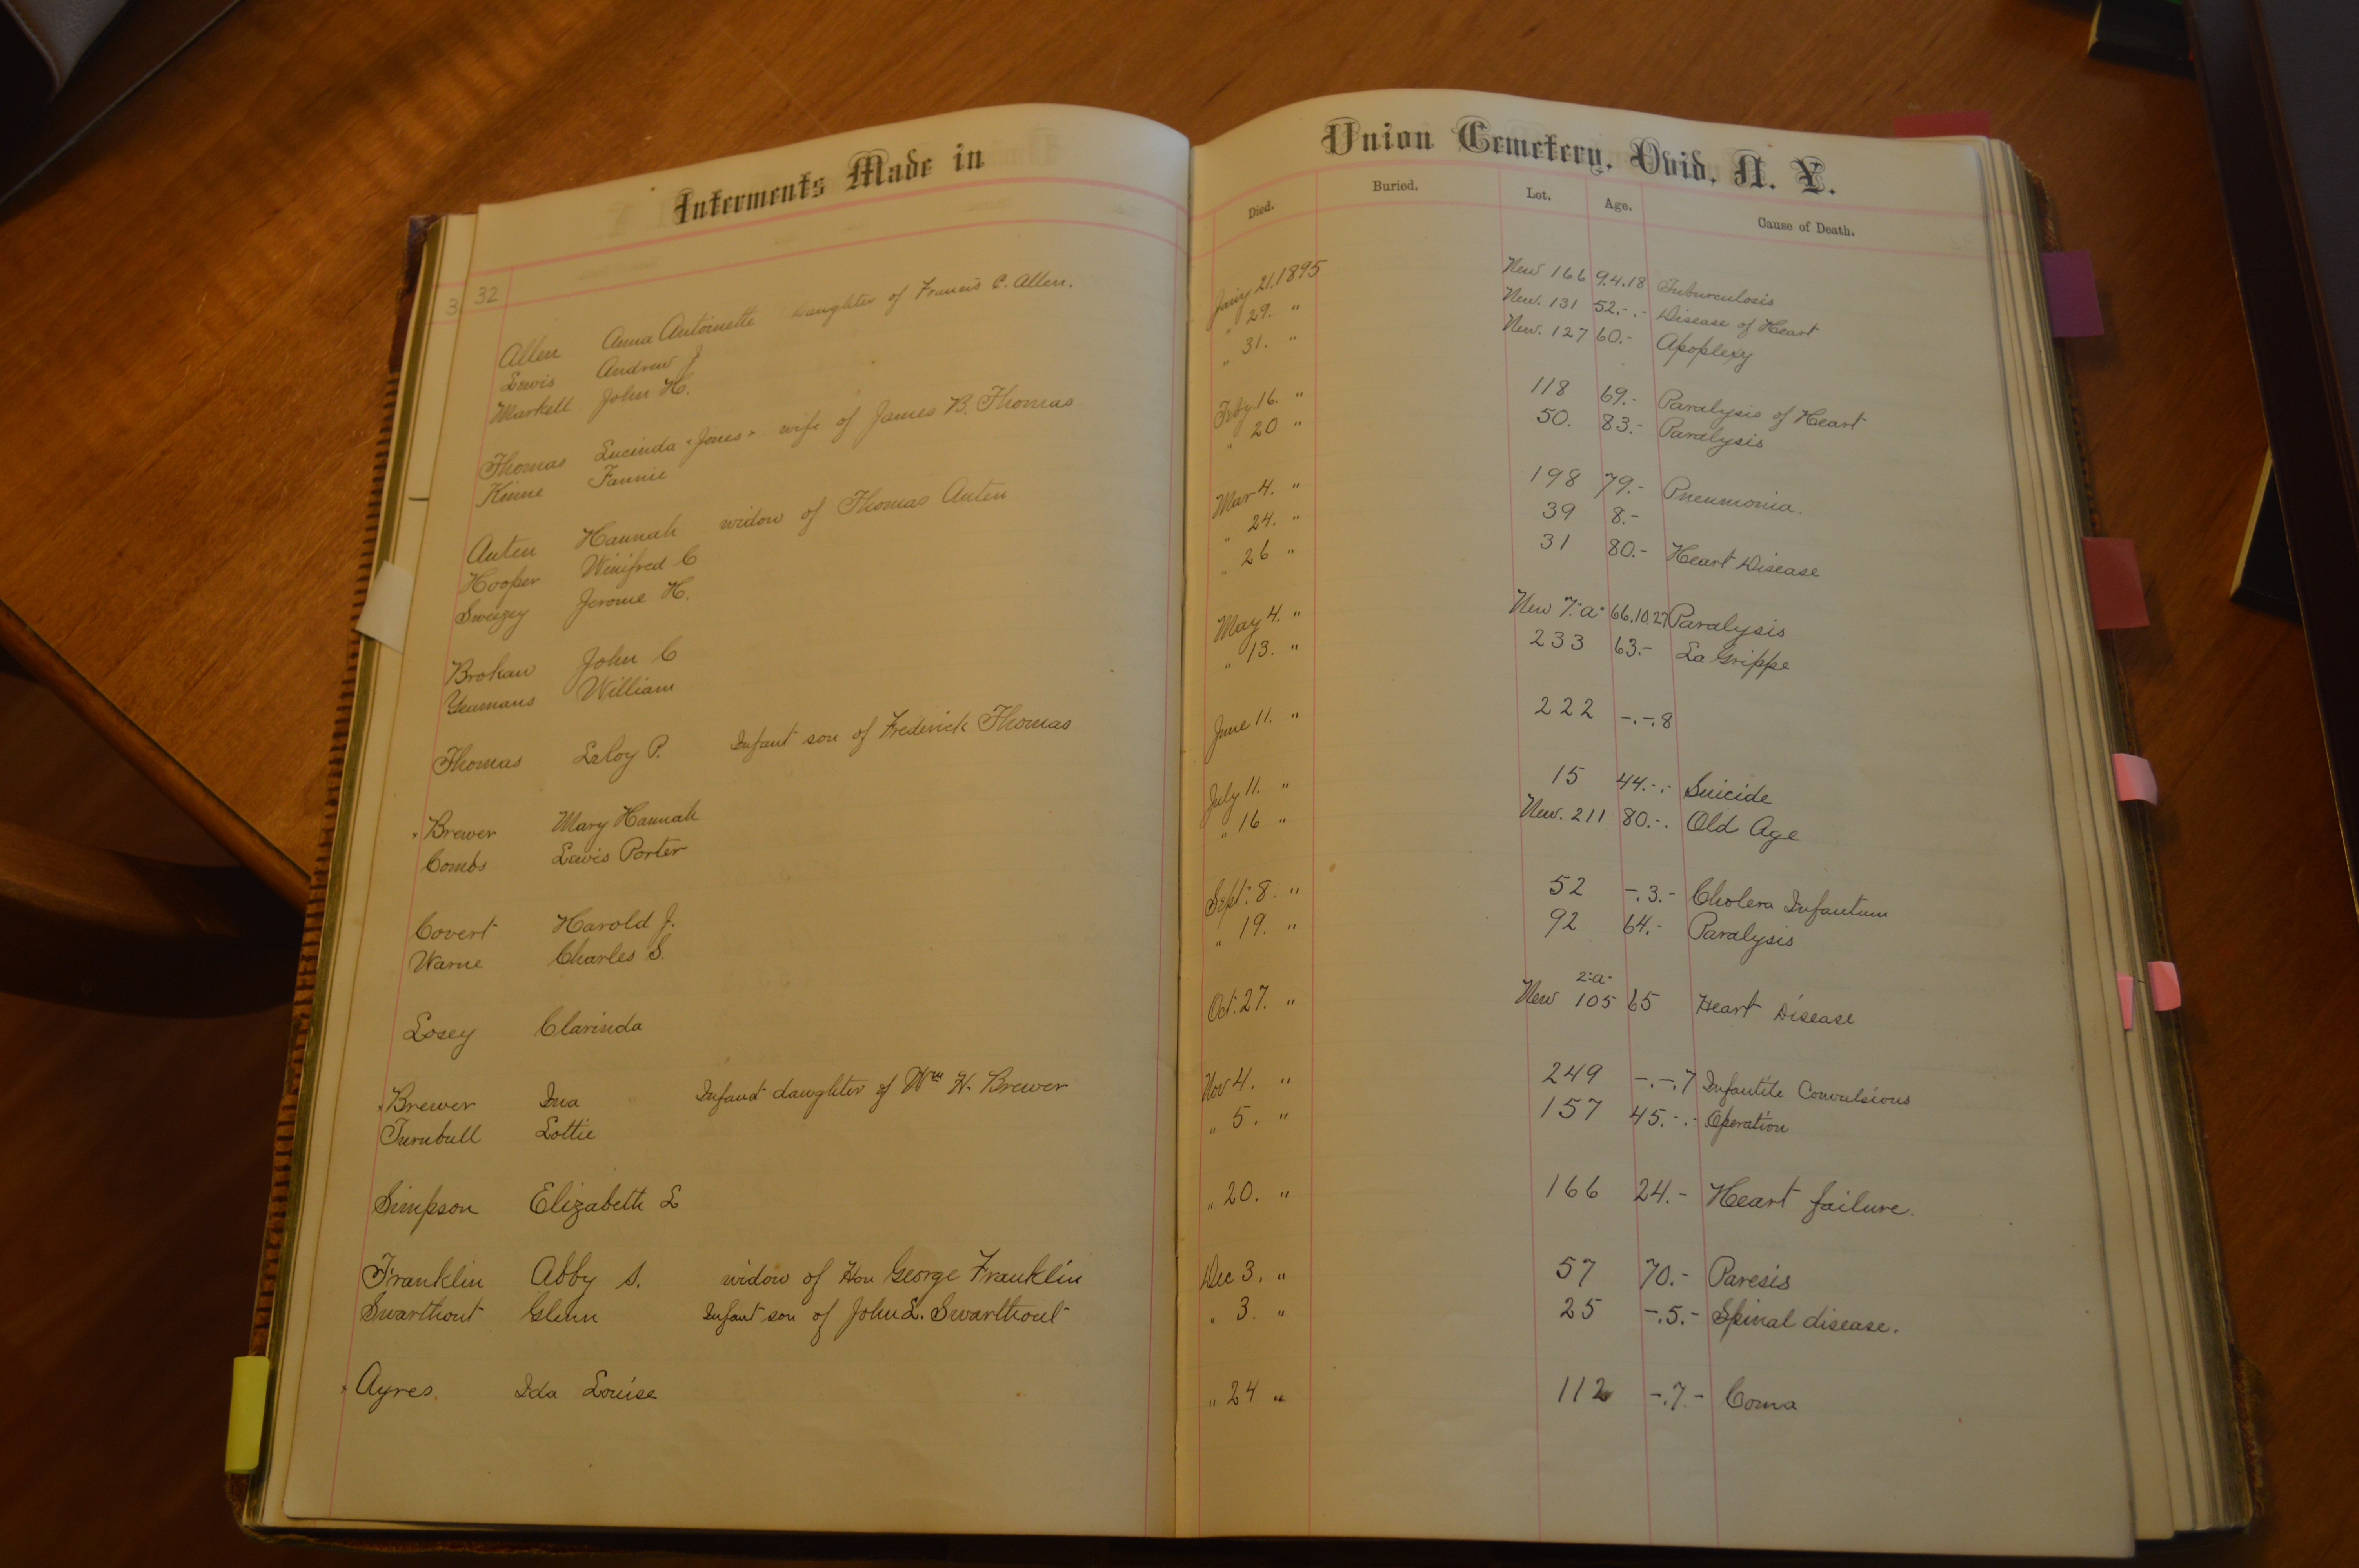 Interments Made in Union Cemetery, Ovid, N. Y.
Died. Buried. Lot. Age. Cause of Death.
3 32
Allen Anna Antoinette Daughter of Francis C. Allen. Jany 21. 1895 New 166 9.4.18 Tuburculosis
Lewis Andrew J " 29. " New. 131 52.-.- Disease of Heart
Markell John H. " 31. " New. 127 60.- Apoplexy
Thomas Lucinda "Jones" wife of James B. Thomas Feby 16. " 118 69.- Paralysis of Heart
Kinne Fannie " 20 " 50. 83.- Paralysis
Auten Hannah widow of Thomas Auten Mar 4. " 198 79.- Pneumonia.
Hooper Winifred C " 24. " 39 8.-
Swezey Jerome H. " 26 " 31 80.- Heart Disease
Brokaw John C May 4. " New 7."a" 66.10.27 Paralysis
Yeamans William " 13. " 233 63.- La Grippe
Thomas LeRoy P. Infant son of Frederick Thomas June 11. " 222 -.-.8
Brewer Mary Hannah July 11. " 15 44.-.- Suicide
Combs Lewis Porter " 16 " New. 211 80.-. Old Age
Covert Harold J. Sept. 8. " 52 -.3.- Cholera Infantum
Warne Charles S. " 19. " 92 64.- Paralysis
2"a"
Losey Clarinda Oct. 27. " New 105 65 Heart Disease
Brewer Ina Infant daughter of Wm H. Brewer Nov 4. " 249 -.-.7 Infantile Convulsions
Turnbull Lottie " 5. " 157 45.-.- Operation
Simpson Elizabeth L " 20. " 166 24.- Heart failure.
Franklin Abby S. widow of Hon George Franklin Dec 3. " 57 70.- Paresis
Swarthout Glenn Infant son of John L. Swarthout " 3. " 25 -.5.- Spinal disease.
Ayres Ida Louise " 24 " 112 -.7.- Coma